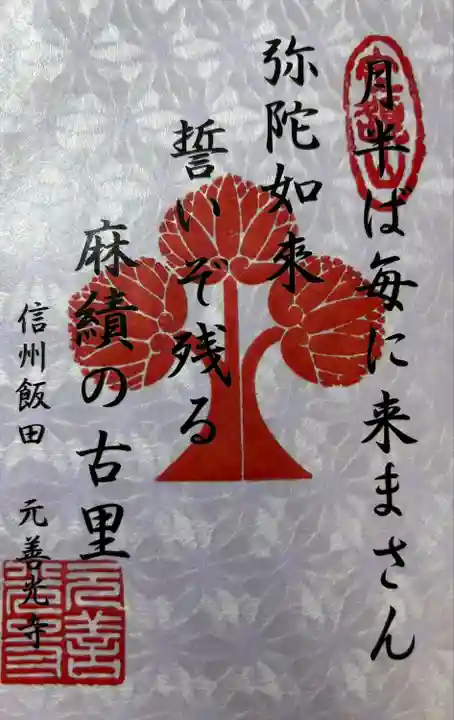 月半ば毎に来まさん
弥陀如来
誓いぞ残る
麻績の古里
信州飯田 元善光寺
元善光寺